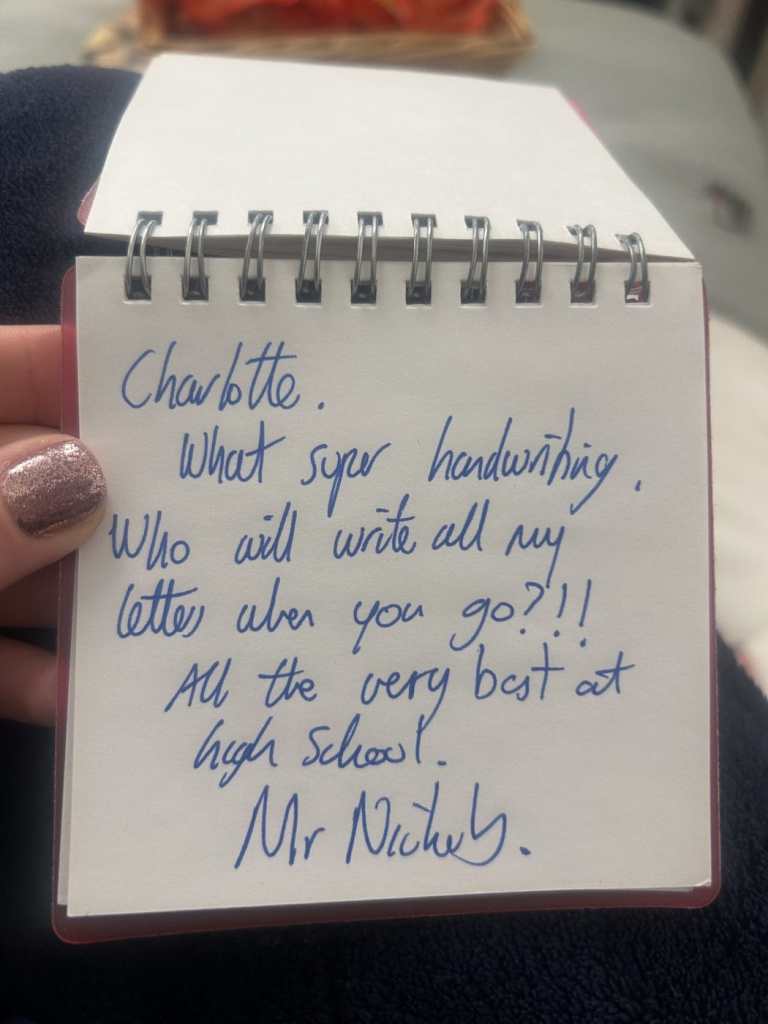 Charlotte.
What super handwriting.
Who will write all my
letters when you go?!!
All the very best at
high school.
Mr Nicholls.